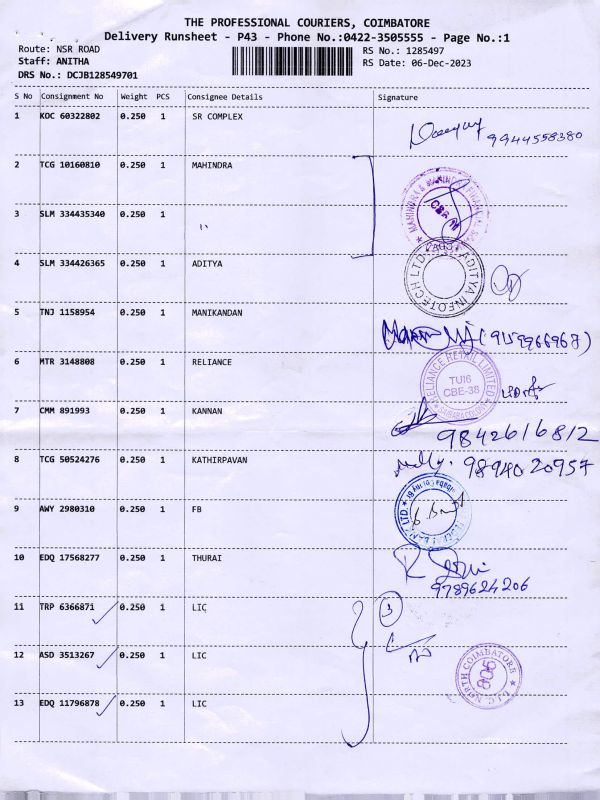 THE PROFESSIONAL COURIERS, COIMBATORE
Delivery Runsheet - P43 - Phone No.:0422-3505555 - Page No.:1
Route: NSR ROAD
RS No.: 1285497
Staff: ANITHA
RS Date: 06-Dec-2023
DRS No.: DCJB128549701
S No Consignment No Weight PCS Consignee Details Signature
1 KOC 60322802 0.250 1 SR COMPLEX
9944558380
2 TCG 10160810 0.250 1 MAHINDRA
3 SLM 334435340 0.250 1 "
4 SLM 334426365 0.250 1 ADITYA
ADITYA INFOTECH LTD
5 TNJ 1158954 0.250 1 MANIKANDAN
6 MTR 3148808 0.250 1 RELIANCE
RELIANCE RETAIL LIMITED
TU16
CBE-38
7 CMM 891993 0.250 1 KANNAN
9842616812
8 TCG 50524276 0.250 1 KATHIRPAVAN
9894020957
9 AWY 2980310 0.250 1 FB
10 EDQ 17568277 0.250 1 THURAI
9789624206
11 TRP 6366871 0.250 1 LIC
3
12 ASD 3513267 0.250 1 LIC
13 EDQ 11796878 0.250 1 LIC
L.I.C. NORTH COIMBATORE